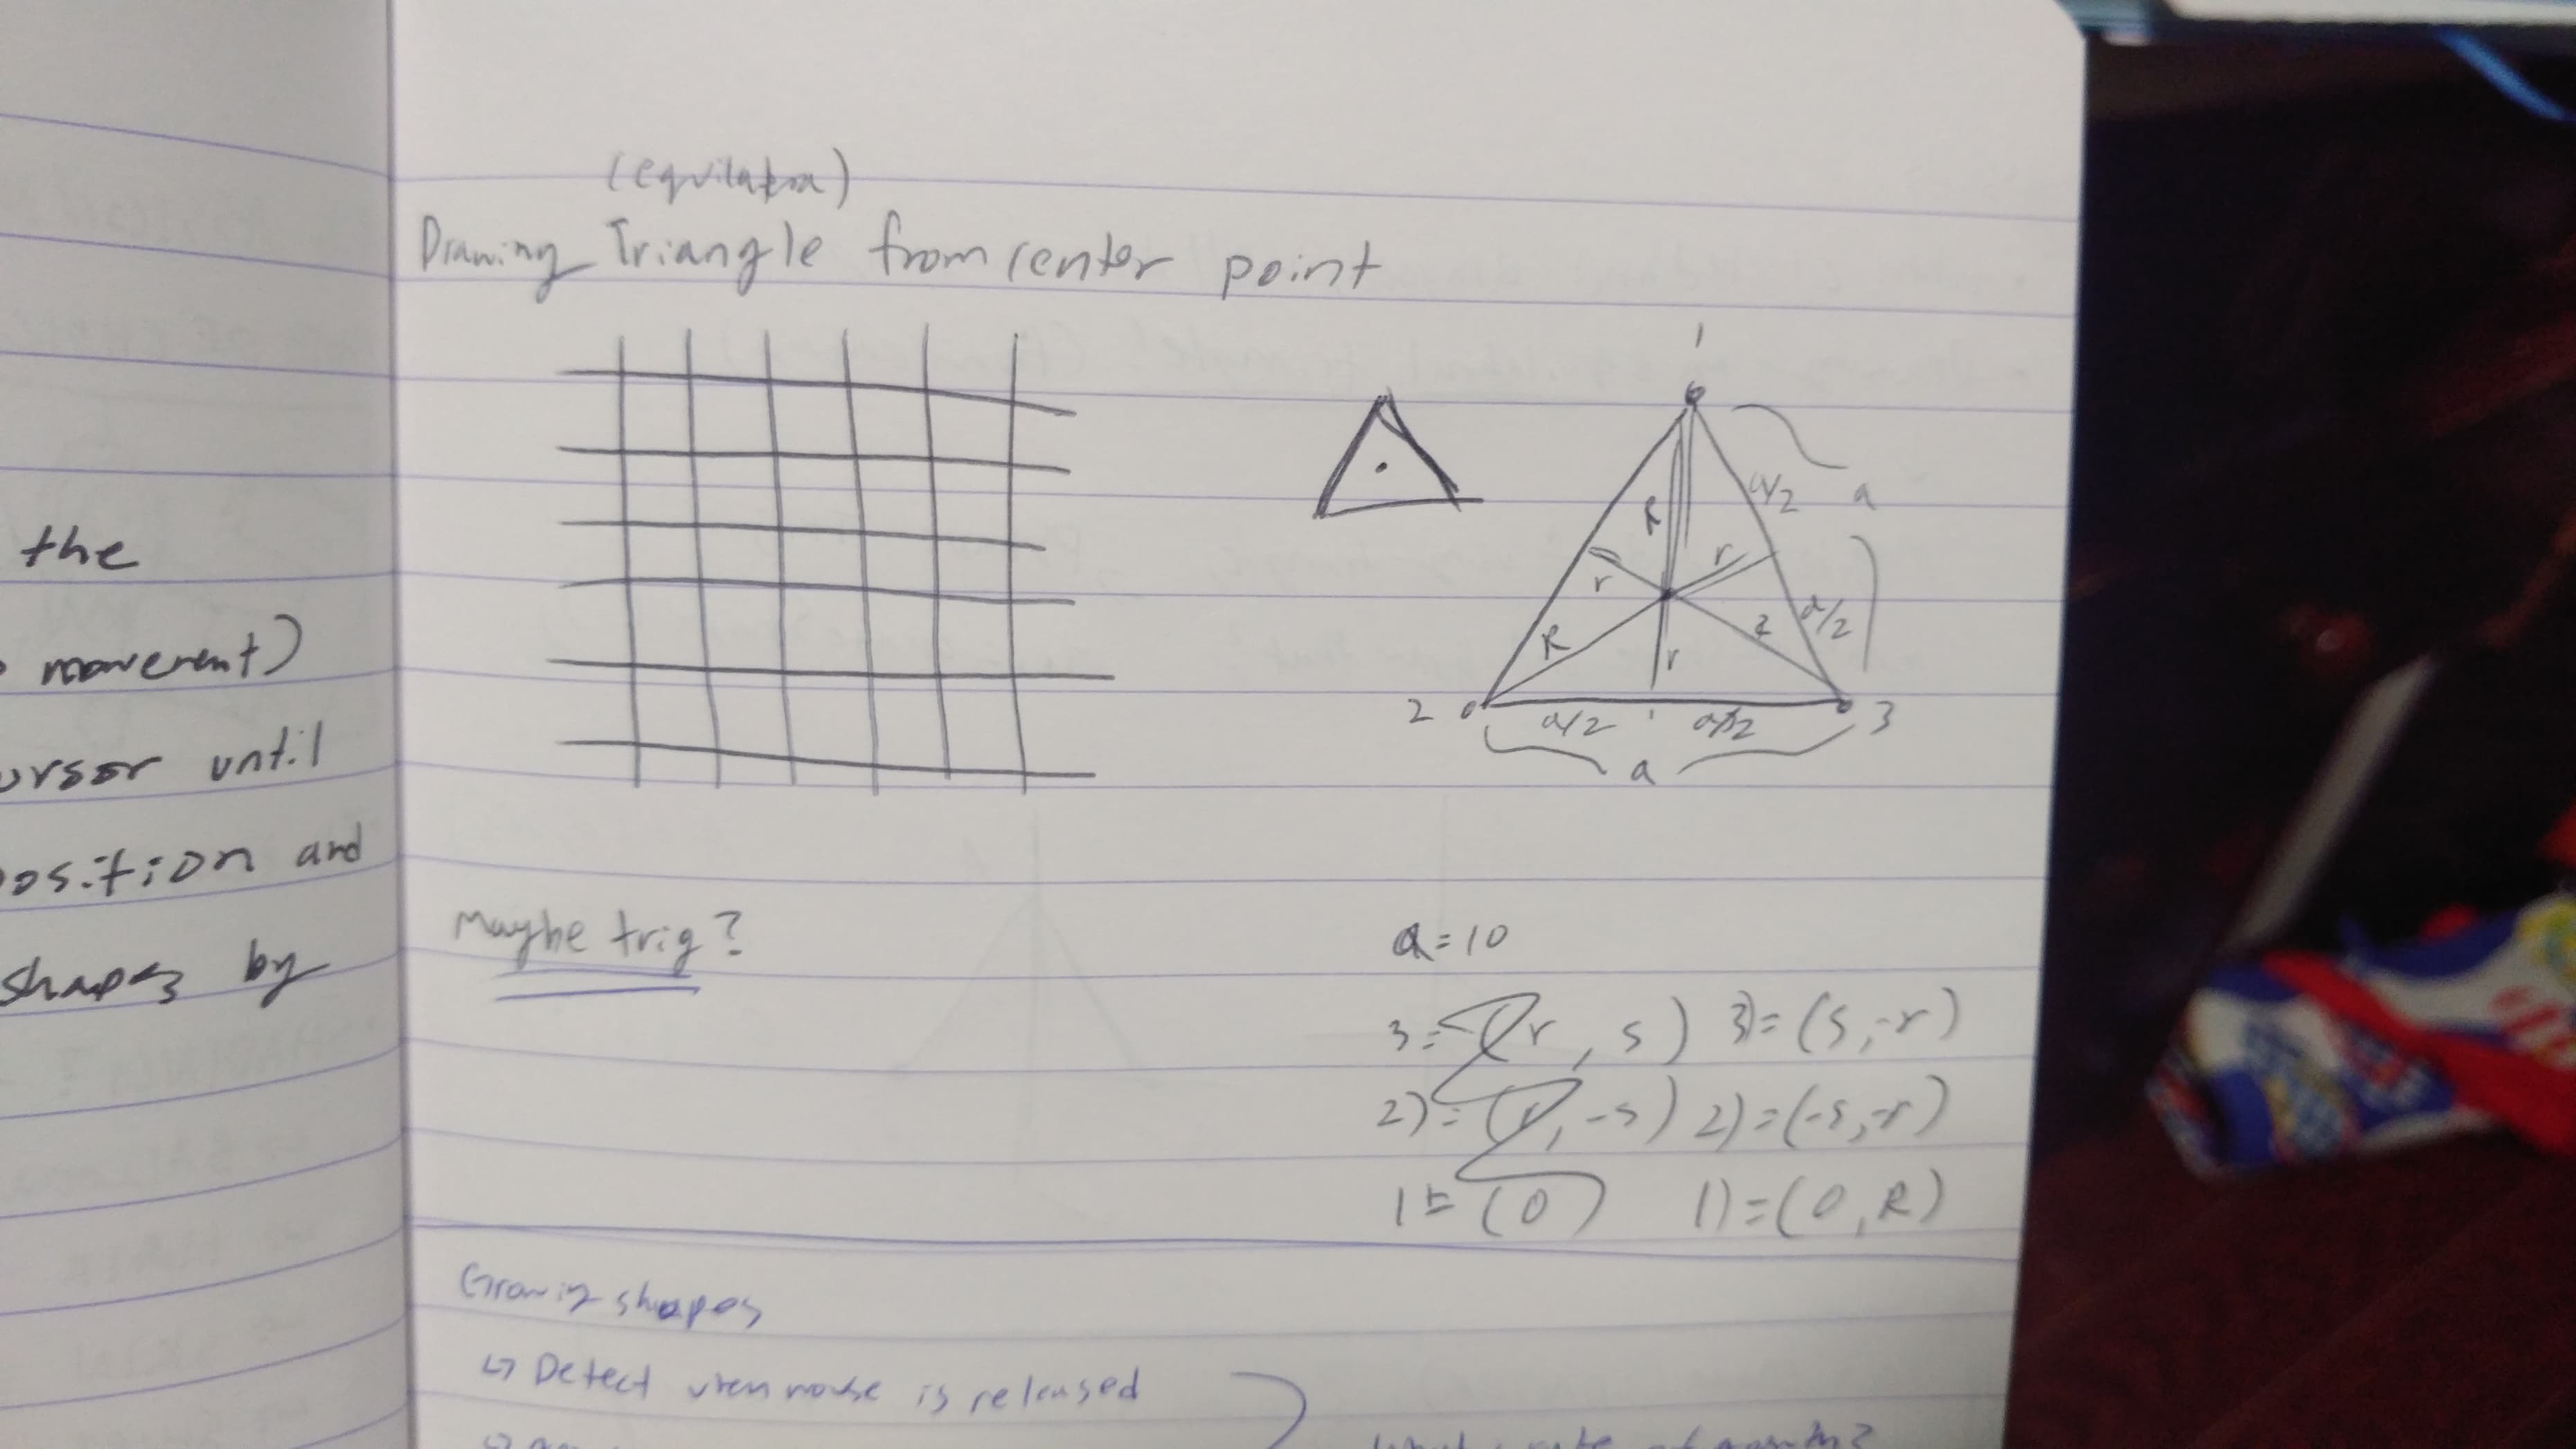 the
movement)
until
and
shapes by
(equilatera)
Drawing Triangle from center point
1
a/2
a
R
r
r
a/2
R
r
2
3
a/2
a/2
a
Maybe trig?
a=10
3= (r, s) 3)= (s,-r)
2)= (r, -s) 2)=(-s,-r)
1)= (0) 1)=(0,R)
Growing shapes
↳ Detect when mouse is released